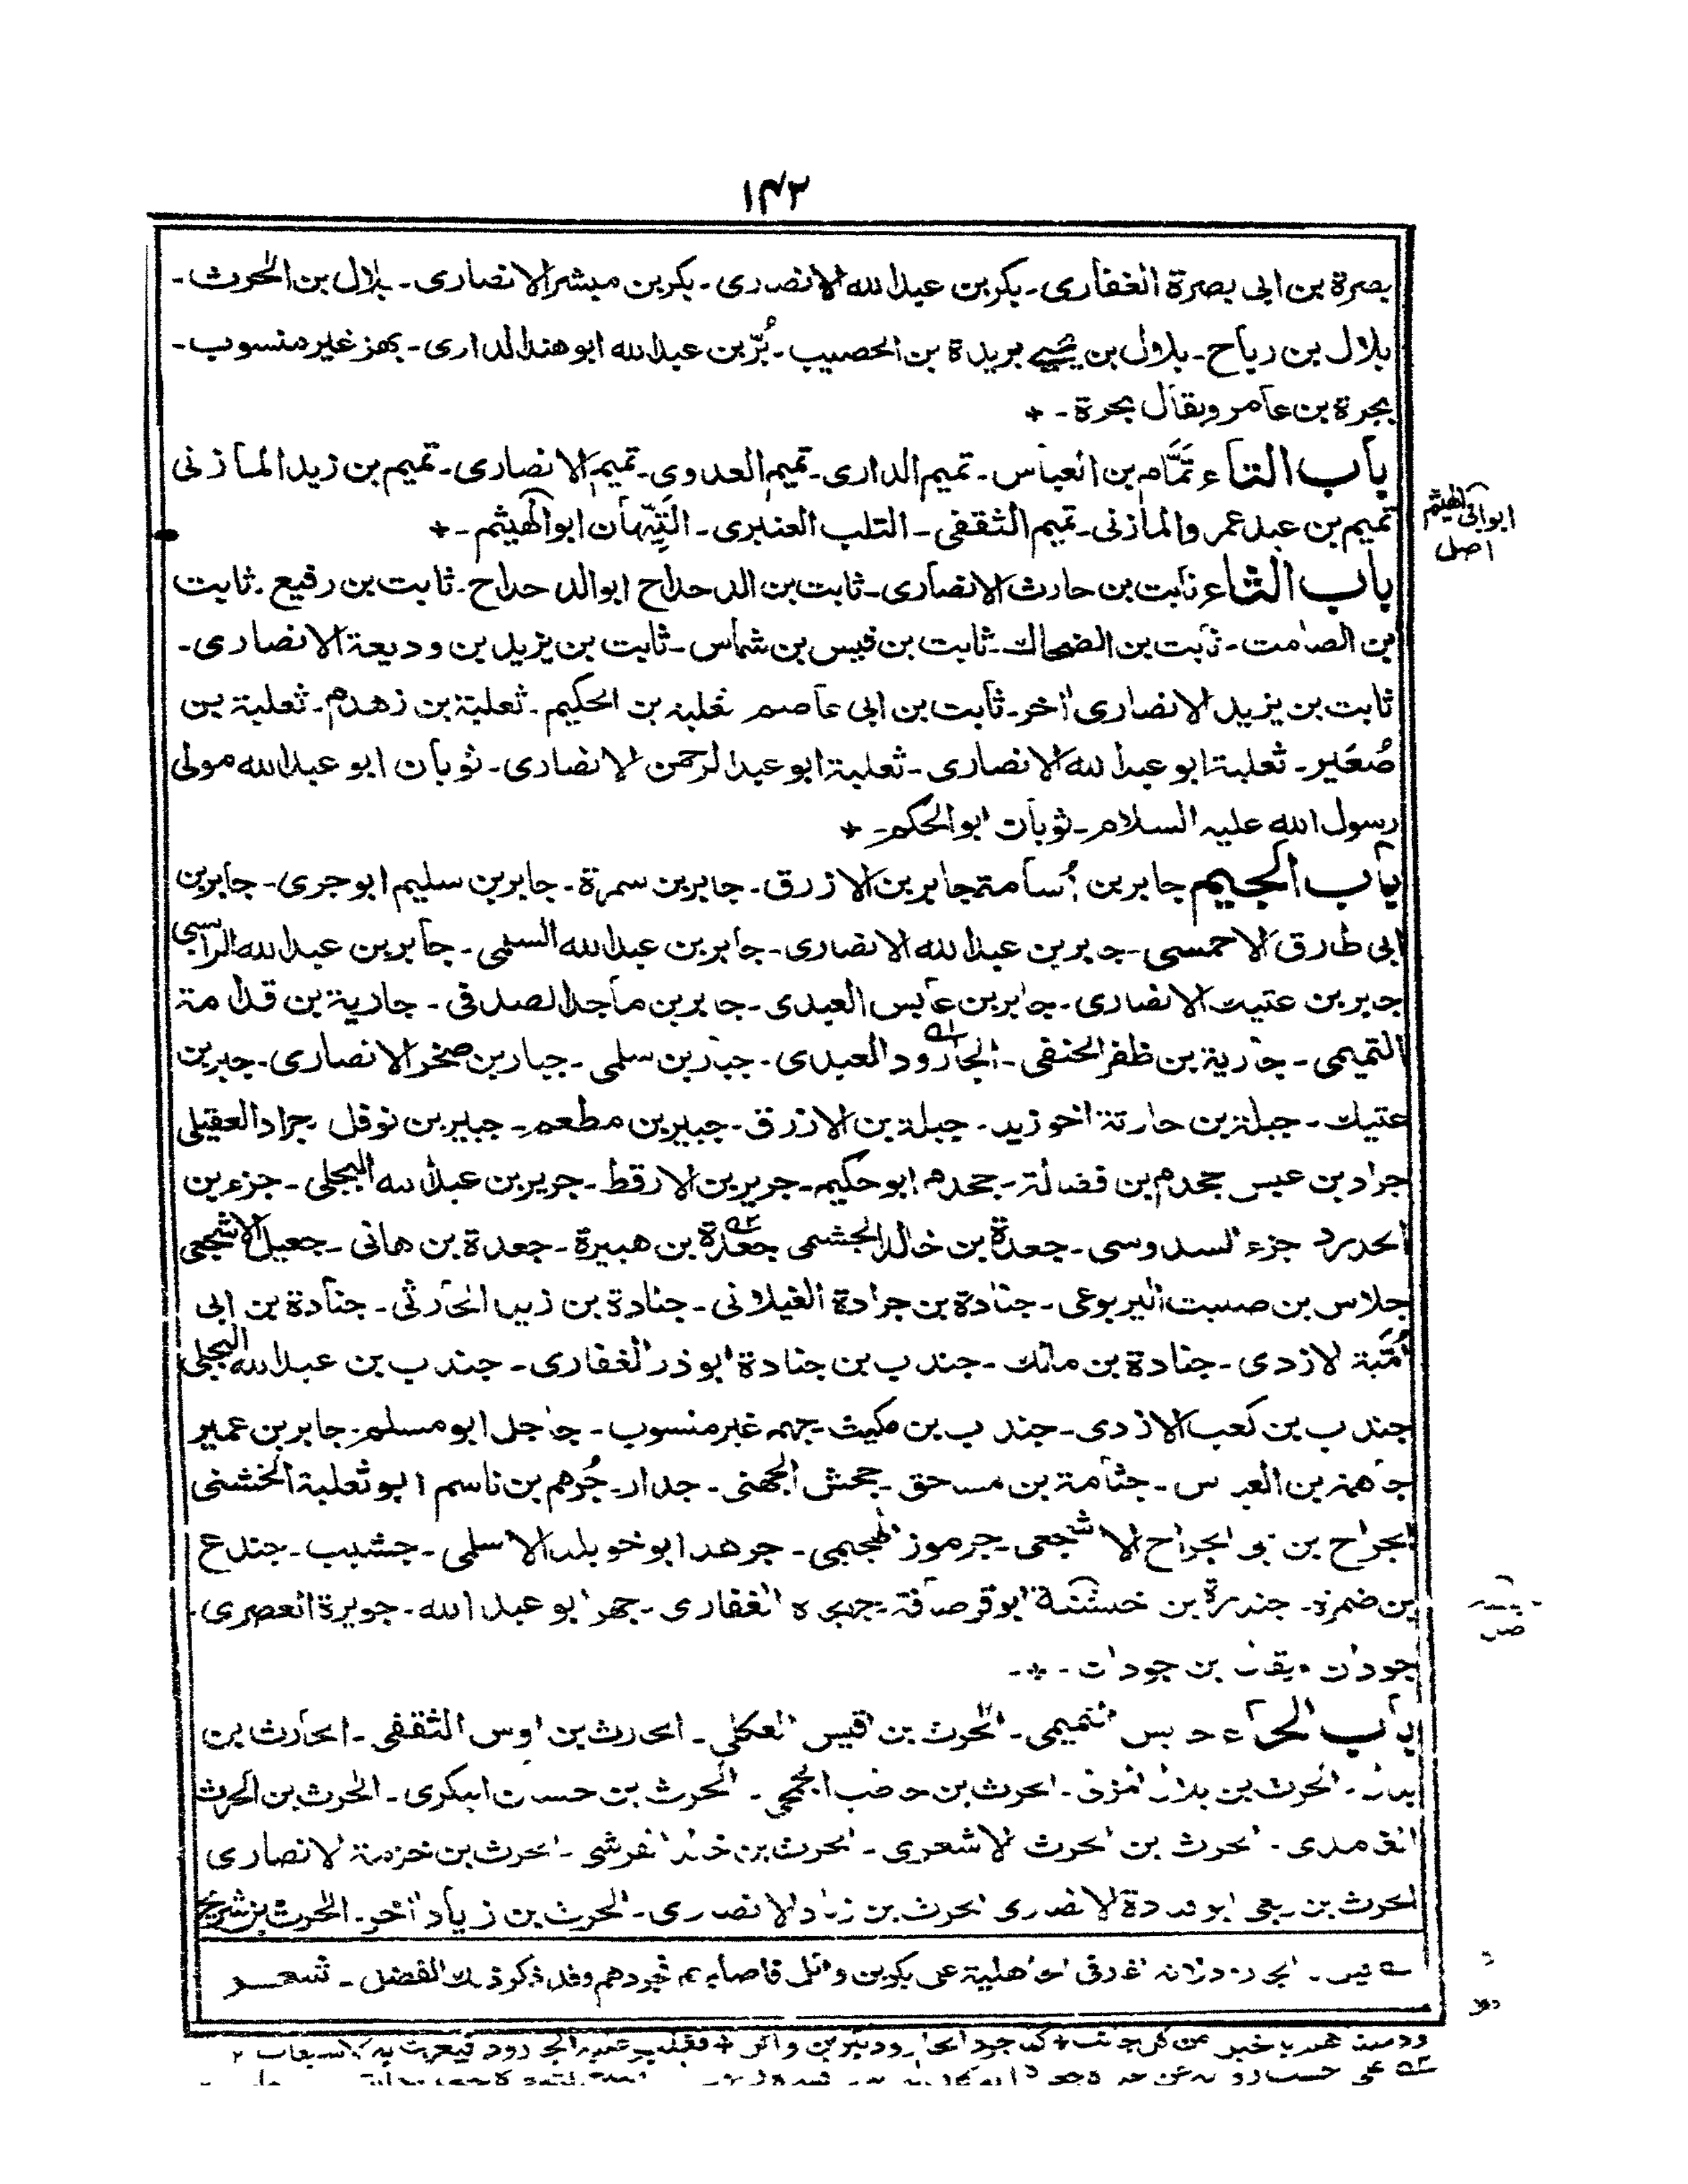 ۱۴۲
بصرة بن ابى بصرة الغفارى ـ بكر بن عبد الله الانصارى ـ بكر بن مبشر الانصارى ـ بلال بن الحرث ـ
بلال بن رباح ـ بلال بن يحيى بريدة بن الحصيب ـ بُرّ بن عبد الله ابو هند الدارى ـ بهز غير منسوب ـ
بجرة بن عامر ويقال بحرة ـ *
باب التاء تمّام بن العباس ـ تميم الدارى ـ تميم العدوى ـ تميم الانصارى ـ تميم بن زيد المازنى
تميم بن عبد عمرو المازنى ـ تميم الثقفى ـ التلب العنبرى ـ التَيِّهان ابو الهيثم ـ *
ابو ابى الهيثم
اصل
باب الثاء ثابت بن حارث الانصارى ـ ثابت بن الدحداح ابو الدحداح ـ ثابت بن رفيع ـ ثابت
بن الصامت ـ ثابت بن الضحاك ـ ثابت بن قيس بن شماس ـ ثابت بن يزيد بن وديعة الانصارى ـ
ثابت بن يزيد الانصارى اخر ـ ثابت بن ابى عاصم ثعلبة بن الحكيم ـ ثعلبة بن زهدم ـ ثعلبة بن
صُعَير ـ ثعلبة ابو عبد الله الانصارى ـ ثعلبة ابو عبد الرحمن الانصارى ـ ثوبان ابو عبد الله مولى
رسول الله عليه السلام ـ ثوبان ابو الحكم ـ *
باب الجيم جابر بن اُسامة جابر بن الازرق ـ جابر بن سمرة ـ جابر بن سليم ابو جرى ـ جابر بن
ابى طارق الاحمسى ـ جابر بن عبد الله الانصارى ـ جابر بن عبد الله السلمى ـ جابر بن عبد الله الراسبى
جابر بن عتيك الانصارى ـ جابر بن عابس العبدى ـ جابر بن ماجد الصدفى ـ جارية بن قدامة
التميمى ـ جارية بن ظفر الحنفى ـ الجارود العبدى ـ جبار بن سلمى ـ جبار بن صخر الانصارى ـ جبر بن
عتيك ـ جبلة بن حارثة اخو زيد ـ جبلة بن الازرق ـ جبير بن مطعم ـ جبير بن نوفل ـ جراد العقيلى
جراد بن عبس جحدم بن فضالة ـ جحدم ابو حكيم ـ جرير بن الارقط ـ جرير بن عبد الله البجلى ـ جزء بن
الحدرد جزء السدوسى ـ جعدة بن خالد الجشمى جعدة بن هبيرة ـ جعدة بن هانى ـ جعيل الاشجعى
جلاس بن صليت اليربوعى ـ جنادة بن جرادة الغيلانى ـ جنادة بن زيد الحارثى ـ جنادة بن ابى
اُمَيّة الازدى ـ جنادة بن مالك ـ جندب بن جنادة ابو ذر الغفارى ـ جندب بن عبد الله البجلى
جندب بن كعب الازدى ـ جندب بن مكيث ـ جهم غير منسوب ـ جاجل ابو مسلم ـ جابر بن عمير
جاهمة بن العباس ـ جثامة بن مساحق ـ جحش الجهنى ـ جدار ـ جُرهم بن ناسم ابو ثعلبة الخشنى
الجراح بن ابى الجراح الاشجعى ـ جرموز الهجيمى ـ جرهد ابو خويلد الاسلمى ـ جشيب ـ جندع
بن ضمرة ـ جندرة بن خيشنة ابو قرصافة ـ جهجاه الغفارى ـ جهر ابو عبد الله ـ جويرة العصرى ـ
جودان ويقال بن جودان ـ * ـ
باب الحاء حابس التميمى ـ الحرث بن اقيس العكلى ـ الحارث بن اوس الثقفى ـ الحارث بن
بدل ـ الحرث بن بلال المزنى ـ الحرث بن حاطب الجمحى ـ الحرث بن حسان البكرى ـ الحرث بن الحرث
الغامدى ـ الحرث بن الحرث الاشعرى ـ الحرث بن خالد القرشى ـ الحرث بن خزمة الانصارى
الحرث بن ربعى ابو قتادة الانصارى الحرث بن زياد الانصارى ـ الحرث بن زياد اخر ـ الحرث بن شريح
الجارود لانه اغار فى الجاهلية على بكر بن وائل فاصابهم فجردهم وقد ذكر ذلك الفضل ـ شعر